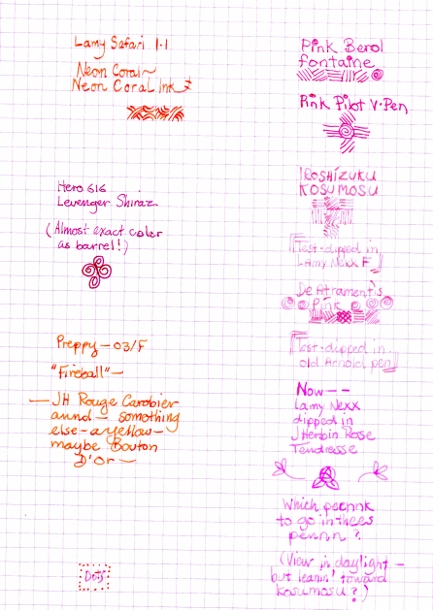 Lamy Safari 1.1
Neon Coral~
Neon Coral Ink
Hero 616
Levenger Shiraz
(Almost exact color
as barrel!)
Preppy - 03/F
"Fireball" -
- JH Rouge Caroubier
annd - somothing
else - a yellow -
maybe Bouton
D'Or -
Dots
Pink Berol
fontaine
Pink Pilot V-Pen
IROSHIZUKU
KOSUMOSU
[Test-dipped in
Lamy Nexx F]
De Atrament's
Pink
[Test-dipped in
old Arnold pen]
Now --
Lamy Nexx
dipped in
J Herbin Rose
Tendresse
Which peennk
to go in thees
pennn?
(View in daylight -
but leanin' toward
kosumosu?)